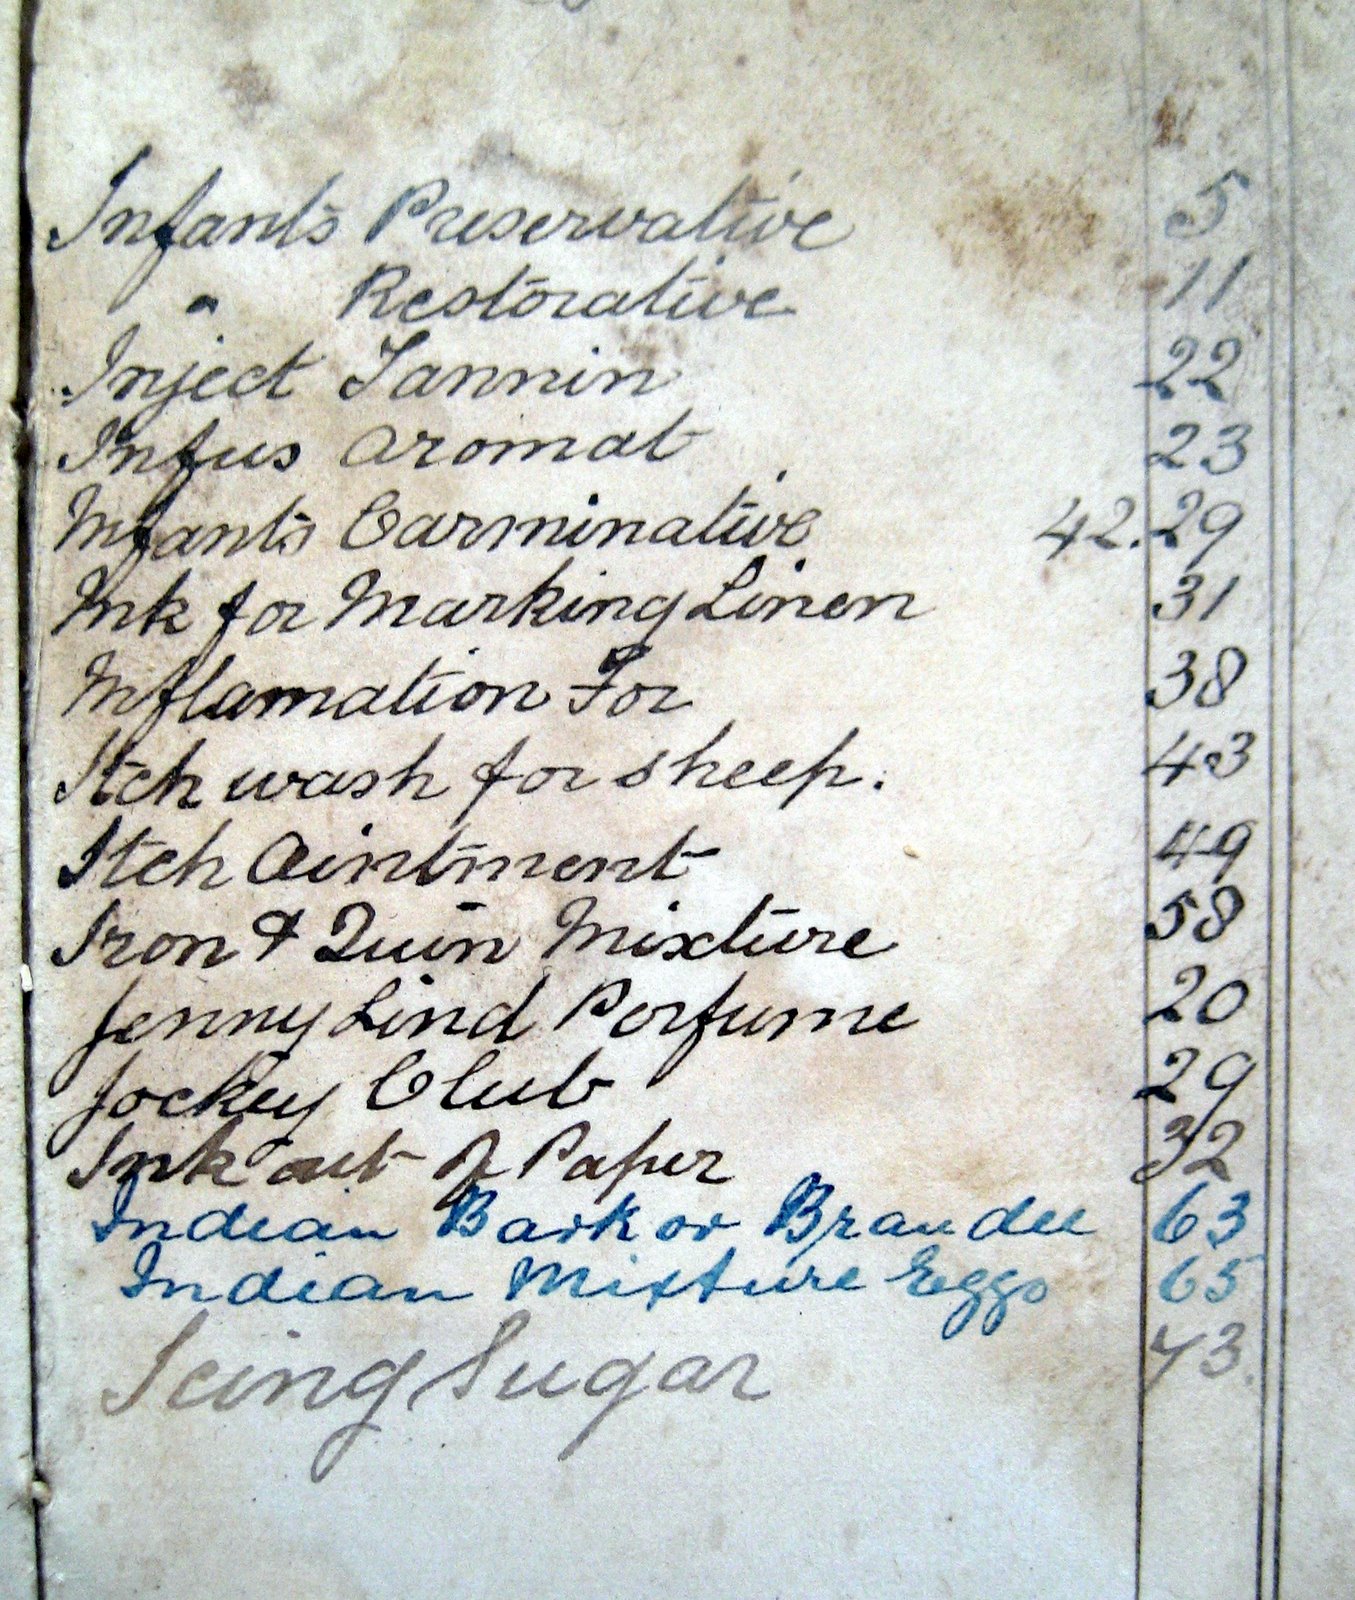 Infants Preservative 5
" Restorative 11
Inject Tannin 22
Infus Aromat 23
Infants Carminative 42.29
Ink for Marking Linen 31
Inflamation For 38
Itch wash for sheep. 43
Itch Ointment 49
Iron & Quin Mixture 58
Jenny Lind Perfume 20
Jockey Club 29
Ink out of Paper 32
Indian Bark or Brandee 63
Indian Mixture Eggs 65
Icing Sugar 73.